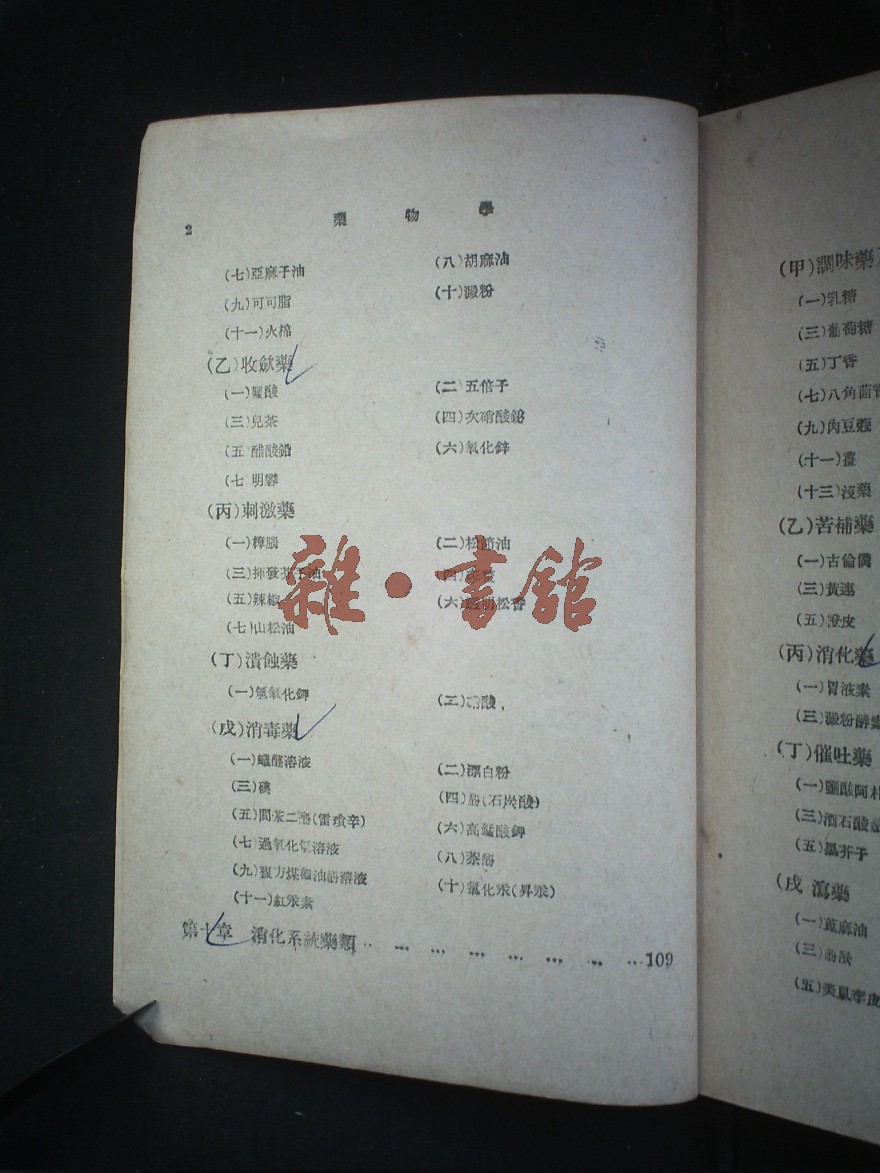 2 藥物學
(七)亞麻子油 (八)胡麻油
(九)可可脂 (十)澱粉
(十一)火棉
(乙)收斂藥
(一)鞣酸 (二)五倍子
(三)兒茶 (四)次硝酸鉍
(五)醋酸鉛 (六)氧化鋅
(七)明礬
(丙)刺激藥
(一)樟腦 (二)松節油
(三)揮發芥子油 (四)
(五)辣椒 (六)透明松香
(七)山松油
(丁)潰蝕藥
(一)氫氧化鉀 (二)硝酸
(戊)消毒藥
(一)蟻醛溶液 (二)漂白粉
(三)碘 (四)酚(石炭酸)
(五)間苯二酚(雷瑣辛) (六)高錳酸鉀
(七)過氧化氫溶液 (八)萘酚
(九)複方煤餾油酚溶液 (十)氯化汞(昇汞)
(十一)紅汞素
第十章 消化系統藥類 … … … … … … … …109
(甲)調味藥
(一)乳糖
(三)葡萄糖
(五)丁香
(七)八角茴香
(九)肉豆蔻
(十一)薑
(十三)沒藥
(乙)苦補藥
(一)古倫僕
(三)黃連
(五)橙皮
(丙)消化藥
(一)胃液素
(三)澱粉酵素
(丁)催吐藥
(一)鹽酸阿朴
(三)酒石酸
(五)黑芥子
(戊)瀉藥
(一)蓖麻油
(三)酚酞
(五)美鼠李皮
雜·書館